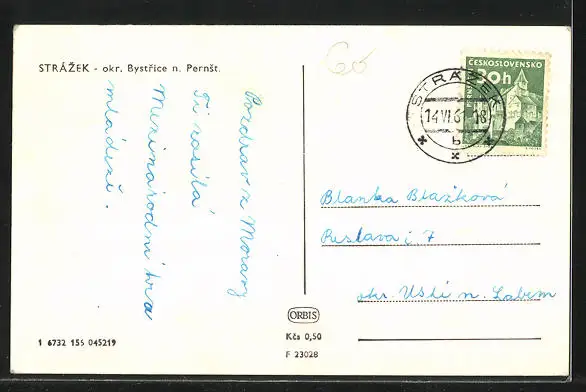 STRÁŽEK - okr. Bystřice n. Pernšt.
60
ČESKOSLOVENSKO
30h
STRÁŽEK
14.VI.61-18
b
Pozdrav z Moravy
Ti posílá
Mezinárodní hra
mládeže.
Blanka Blažková
7
okr. Ústí n. Labem
ORBIS
Kčs 0,50
F 23028
1 6732 156 045219